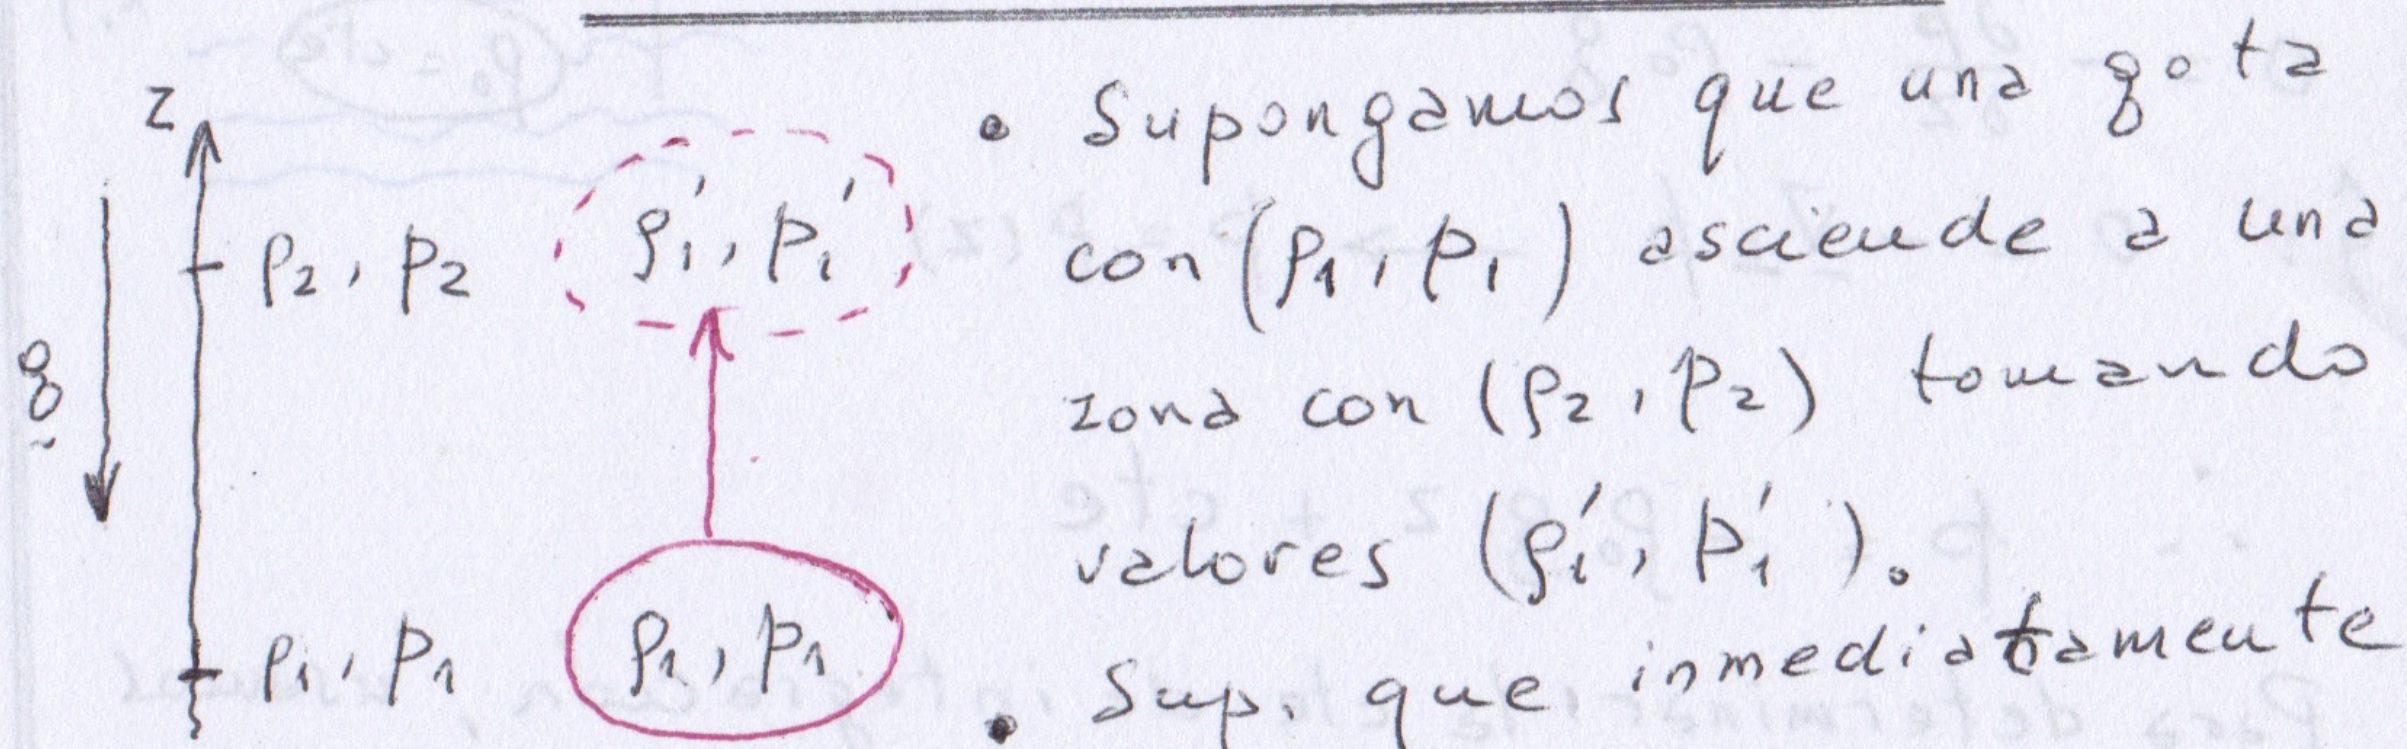 z
g
ρ₂, p₂
ρ₁', p₁'
ρ₁, p₁
ρ₁, p₁
• Supongamos que una gota
con (ρ₁, p₁) asciende a una
zona con (ρ₂, p₂) tomando
valores (ρ₁', p₁').
• Sup. que inmediatamente